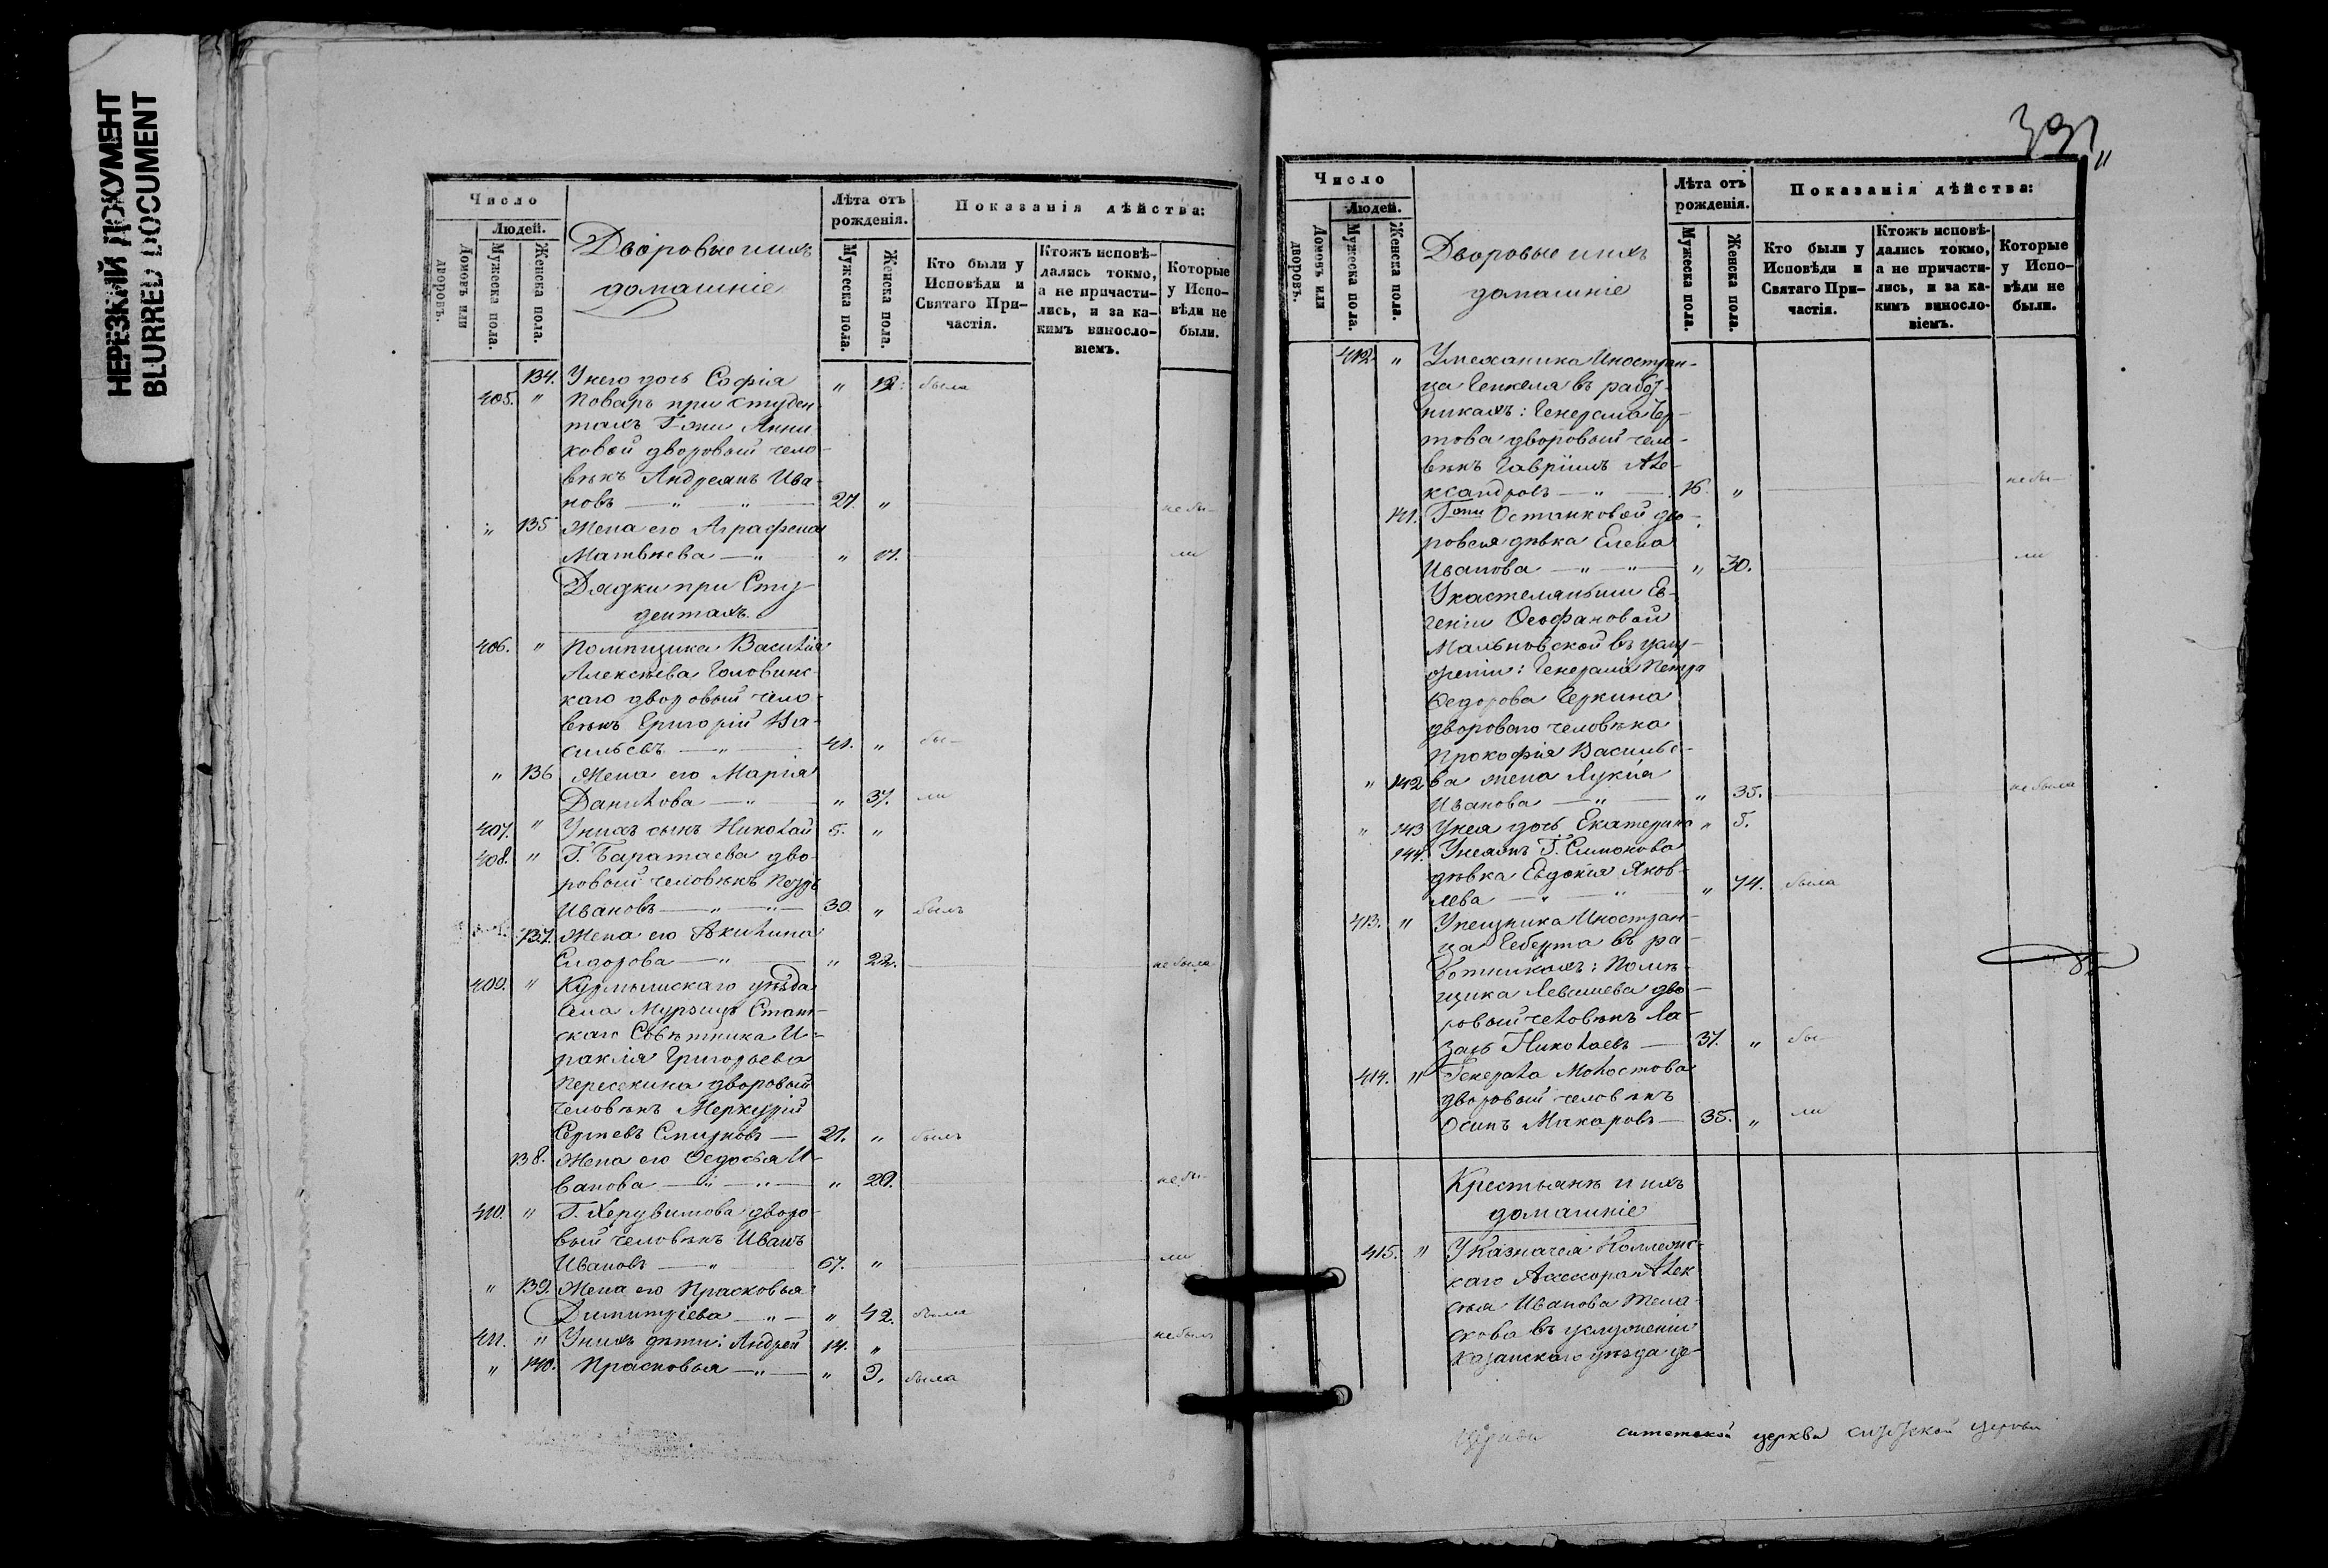 НЕРЕЗКИЙ ДОКУМЕНТ
BLURRED DOCUMENT
Число
Людей.
Домовъ или дворовъ.
Мужеска пола.
Женска пола.
Дворовые и ихъ
домашніе
Лѣта отъ
рожденія.
Мужеска пола.
Женска пола.
Показанія дѣйства:
Кто были у
Исповѣди и
Святаго При-
частія.
Ктожъ исповѣ-
дались токмо,
а не причасти-
лись, и за ка-
кимъ винosло-
віемъ.
Которые
у Испо-
вѣди не
были.
134. У него дочь Софія " 12. была
405. " Поваръ при студен
тахъ Г-жи Анни
ковой дворовый чело-
вѣкъ Андреянъ Ива
новъ — " — " — 27. " не бы-
" 135 Жена его Аграфена
Матвѣева — " " 17. ли
Дядьки при Сту-
дентахъ.
406. " Помпщика Василія
Алексѣева Головинс-
каго дворовый чело-
вѣкъ Григорій Ва-
сильевъ — " — 41. " бы-
" 136 Жена его Марія
Данилова — " — " 37. ли
407. " У нихъ сынъ Николай 5. "
408. " Г. Баратаева дво-
ровый человѣкъ Петръ
Ивановъ — " — " — 30. " былъ
137. Жена его Акилина
Сидорова — " — " 22. не была
409. " Курмышскаго уѣзда
села Мурзицъ Статс-
скаго Совѣтника И-
раклія Григорьева
Пересекина дворовый
человѣкъ Меркурій
Сергѣевъ — 21. " былъ
138. Жена его Ѳедосья И-
ванова — " — " — " 20. не бы-
410. " Г. Херувимова дворо-
вый человѣкъ Иванъ
Ивановъ — " 67. " ли
" 139. Жена его Прасковья
Димитріева — " — " 42. была
411. " У нихъ дѣти: Андрей 14. " не былъ
" 140. Прасковья — " — " 9. была
391
Число
Людей.
Домовъ или дворовъ.
Мужеска пола.
Женска пола.
Дворовые и ихъ
домашніе
Лѣта отъ
рожденія.
Мужеска пола.
Женска пола.
Показанія дѣйства:
Кто были у
Исповѣди и
Святаго При-
частія.
Ктожъ исповѣ-
дались токмо,
а не причасти-
лись, и за ка-
кимъ виносло-
віемъ.
Которые
у Испо-
вѣди не
были.
412. " У механика Иностран-
ца Генкеля въ работ-
никахъ: Генерала Чер-
това дворовый чело-
вѣкъ Гавріилъ Але-
ксандровъ — " — 16. " не бы-
141. Г-жи Останковой дво-
ровая дѣвка Елена
Иванова — " — " — " 30. ли
У кастелянши Ев-
геніи Ѳеофановой
Мальновской въ услу-
женіи: Генерала Петра
Ѳедорова Черкина
двороваго человѣка
Прокофія Василье-
" 142 ва жена Лукія
Иванова — " — " 35. не была
" 143 У нея дочь Екатерина " 5.
144. У нея жъ Г. Симонова
дѣвка Евдокія Яков-
лева — " — " 74. была
413. " У печника Иностран-
ца Геберта въ ра-
ботникахъ: Помѣ-
щика Левашева дво-
ровый человѣкъ Ла-
зарь Николаевъ — 37. " бы-
414. " Генерала Молостова
дворовый человѣкъ
Осипъ Макаровъ — 35. " ли
Крестьяне и ихъ
домашніе
415. " У Казначея Коллежс-
каго Ассесора Алек
сѣя Иванова
въ услуженіи
Казанскаго уѣзда де-
церкви
церкви